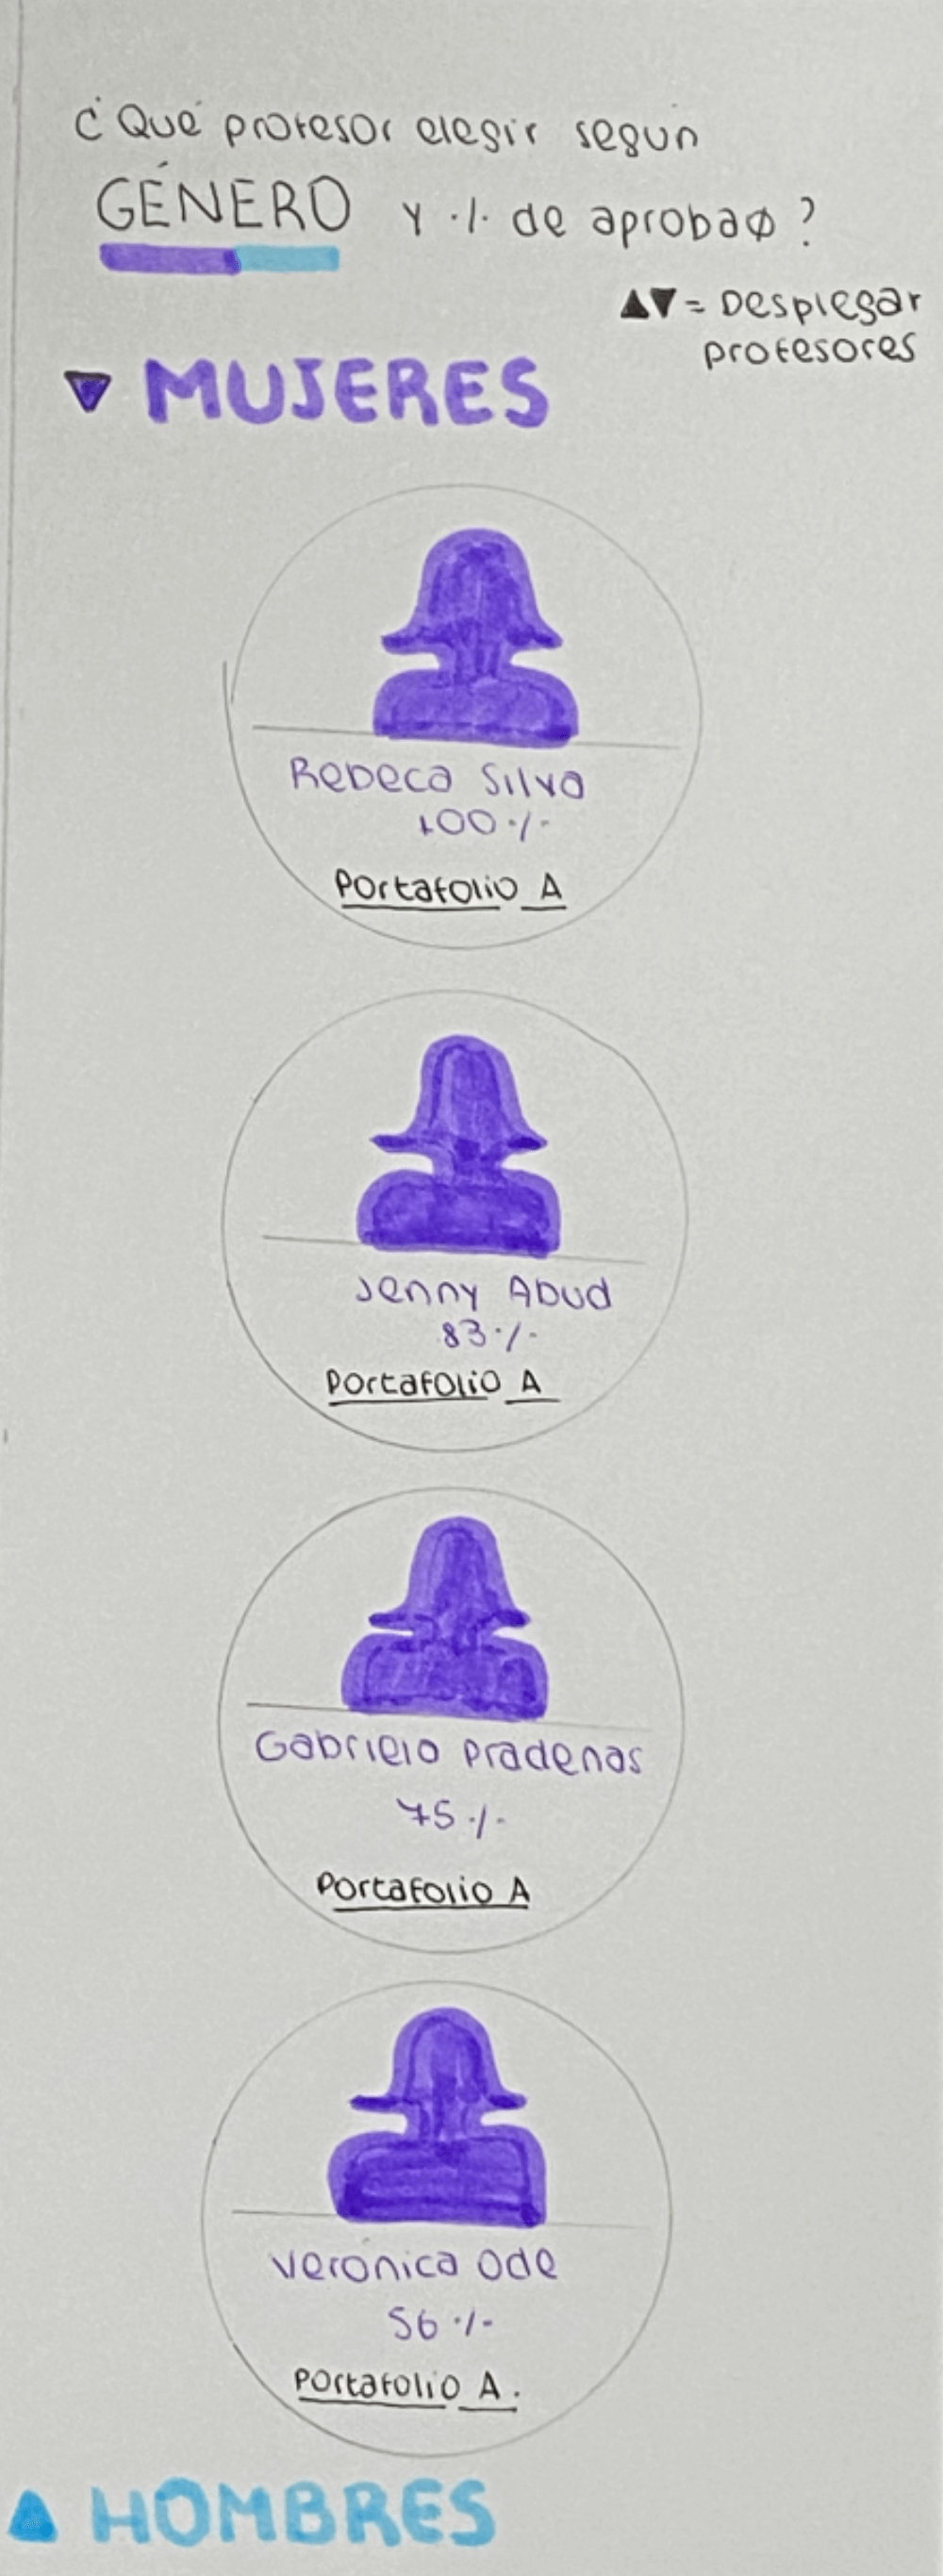 ¿Qué profesor elegir según
GÉNERO y % de aprobaø?
▲▼ = Desplegar
profesores
▼ MUJERES
Rebeca Silva
100%
Portafolio A
Jenny Abud
83%
Portafolio A
Gabriela Pradenas
75%
Portafolio A
Verónica Ode
56%
Portafolio A.
▲ HOMBRES